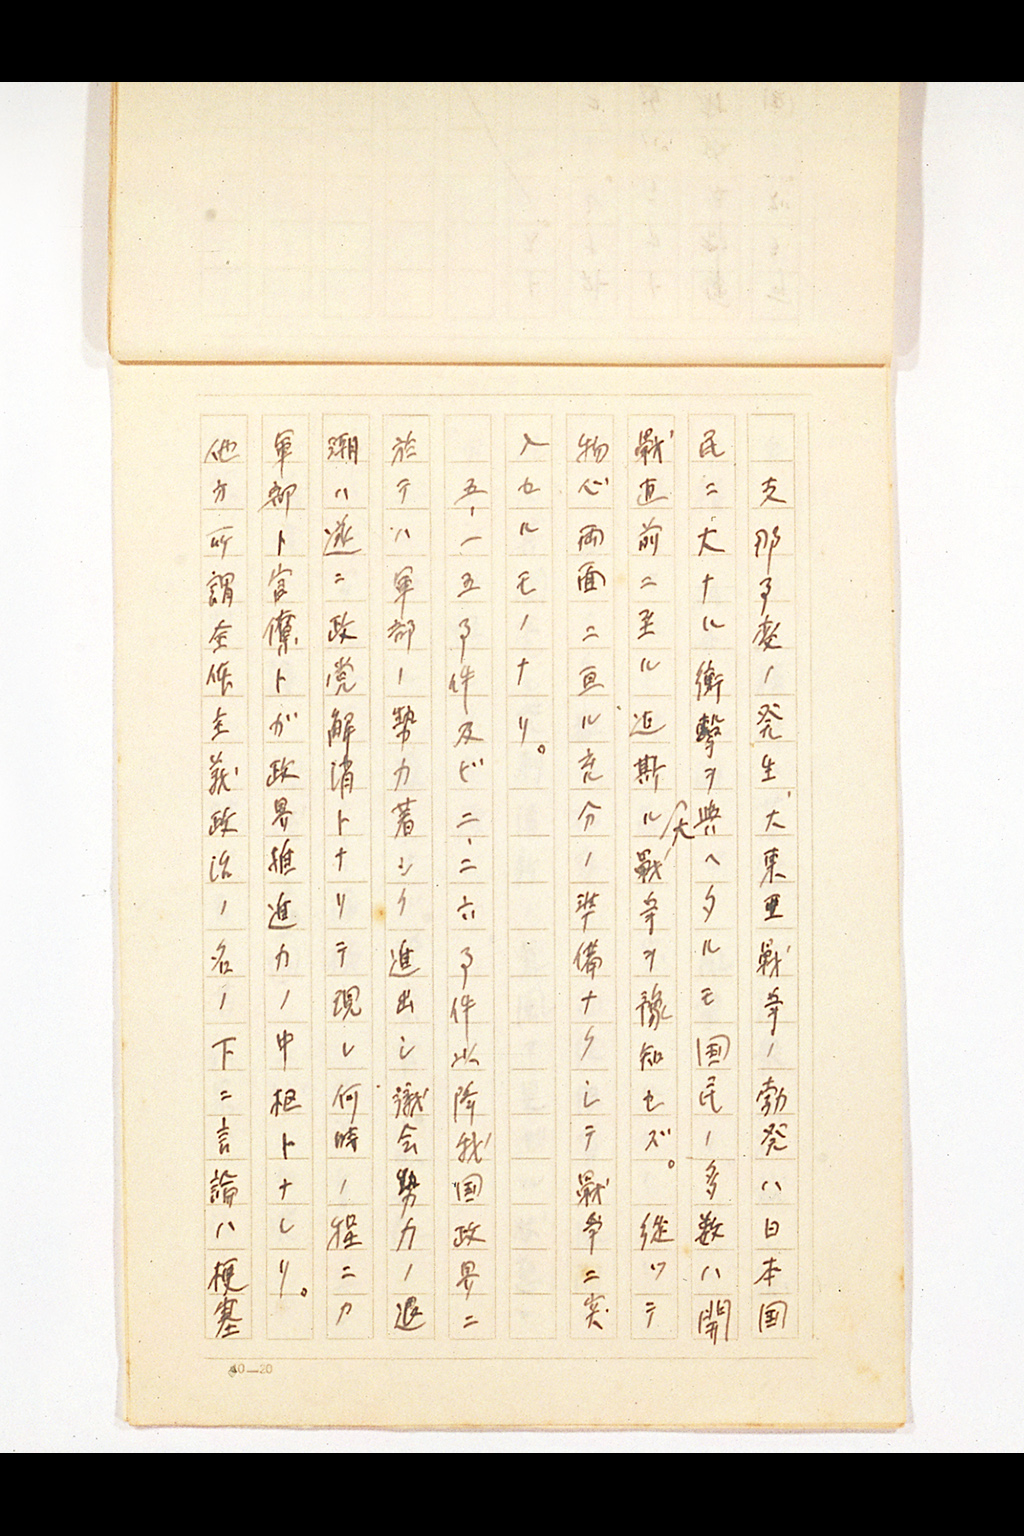 支那事変ノ発生、大東亜戦争ノ勃発ハ日本国
民ニ大ナル衝撃ヲ與ヘタルモ国民ノ多数ハ開
戦直前ニ至ル迄斯ル大戦争ヲ豫知セズ。従ツテ
物心両面ニ亘ル充分ノ準備ナクシテ戦争ニ突
入セルモノナリ。
五・一五事件及ビ二・二六事件以降我国政界ニ
於テハ軍部ノ勢力著シク進出シ議会勢力ノ退
潮ハ遂ニ政党解消トナリテ現レ、何時ノ程ニカ
軍部ト官僚トガ政界推進力ノ中枢トナレリ。
他方所謂全体主義政治ノ名ノ下ニ言論ハ梗塞
40—20